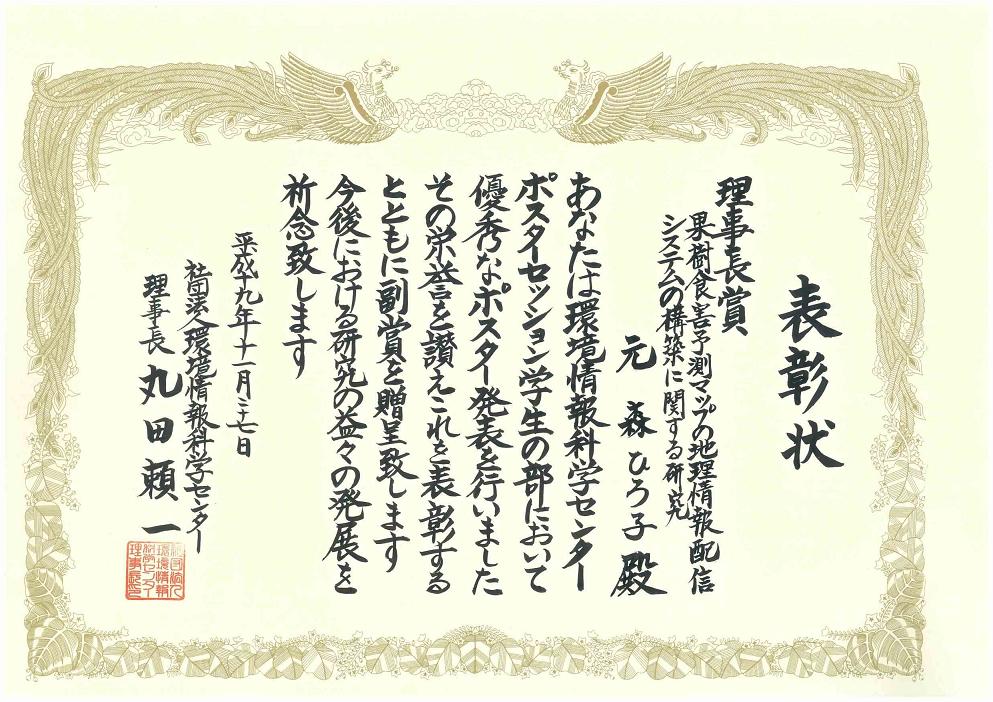 表彰状
理事長賞
果樹食害予測マップの地理情報配信
システムの構築に関する研究
元森ひろ子殿
あなたは環境情報科学センター
ポスターセッション学生の部において
優秀なポスター発表を行いました
その栄誉を讃えこれを表彰する
とともに副賞を贈呈致します
今後における研究の益々の発展を
祈念致します
平成十九年十一月二十七日
社団法人環境情報科学センター
理事長 丸田頼一
社団法人
環境情報
科学センター
理事長印